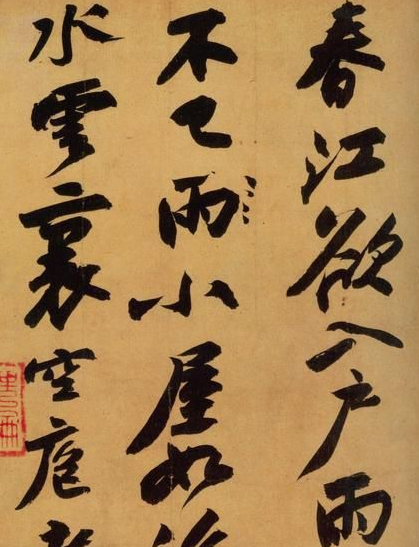 春江欲入戶雨
不已雨小屋如
水雲裏空庖